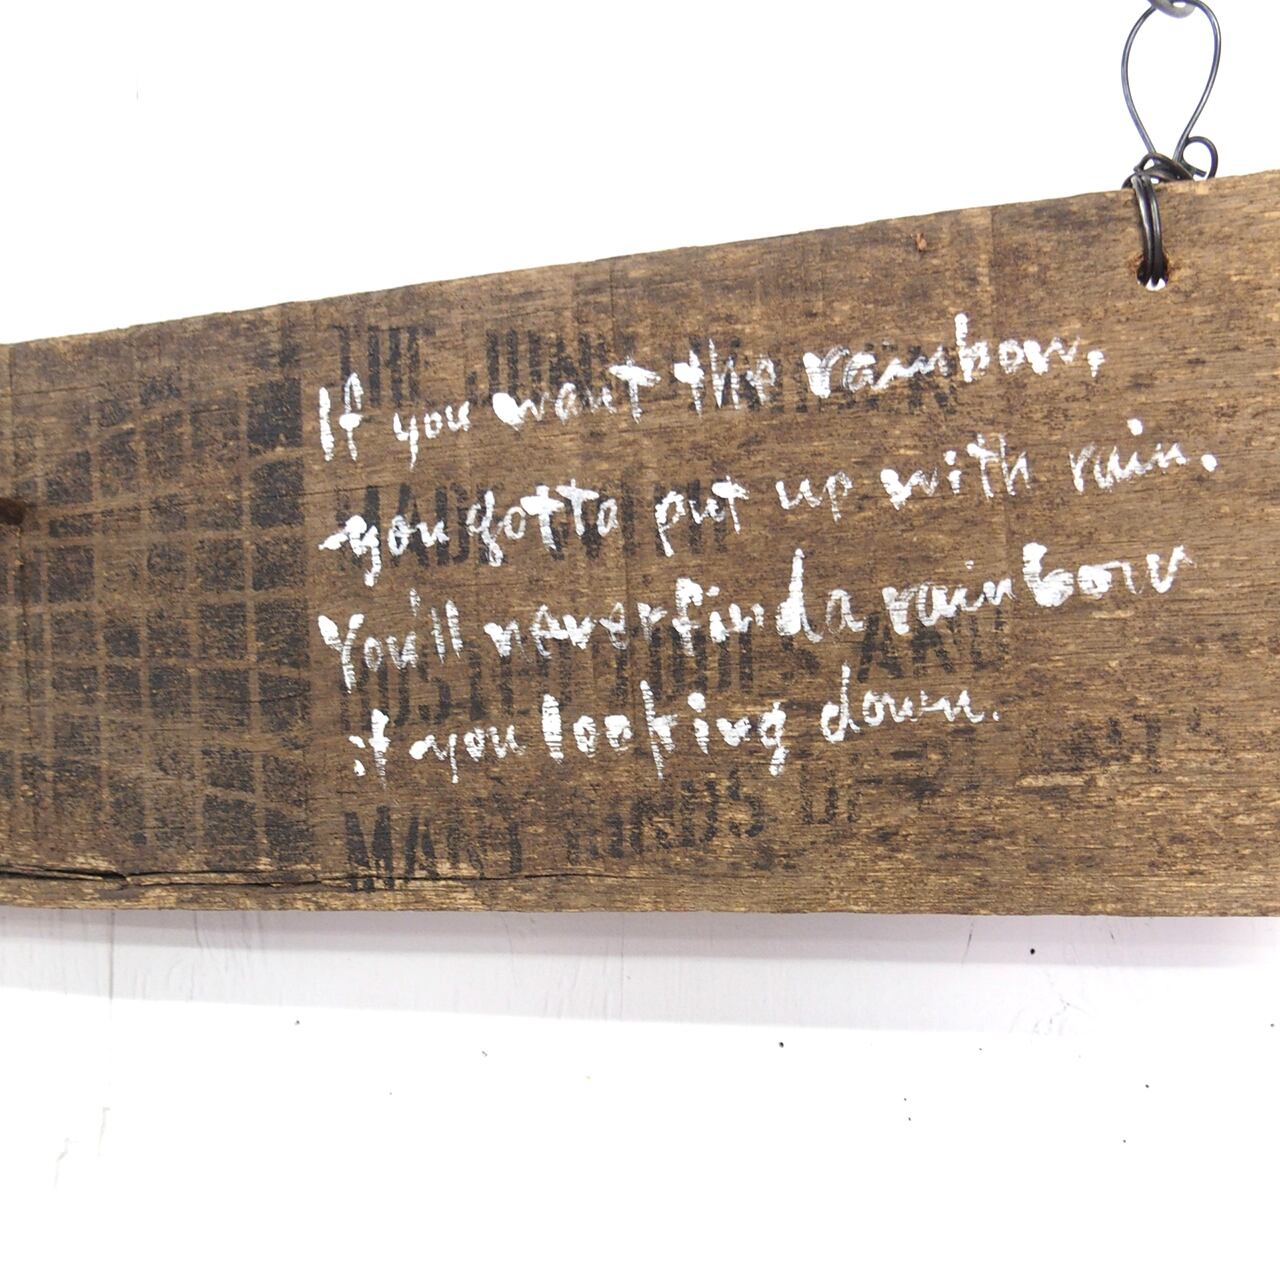 If you want the rainbow,
you gotta put up with rain.
You'll never find a rainbow
if you looking down.
THE JUNK
MADE WITH
RUSTED TOOLS AND
MANY KINDS OF